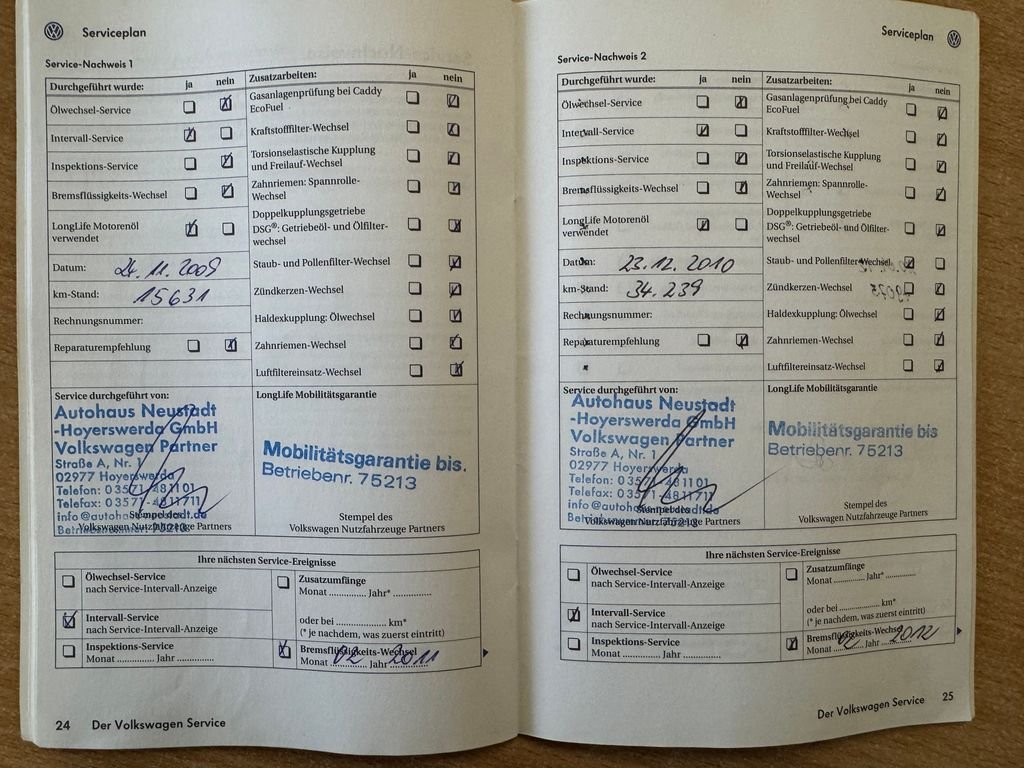 Serviceplan
Service-Nachweis 1
Durchgeführt wurde: ja nein
Ölwechsel-Service
Intervall-Service
Inspektions-Service
Bremsflüssigkeits-Wechsel
LongLife Motorenöl
verwendet
Datum: 24.11.2009
km-Stand: 15631
Rechnungsnummer:
Reparaturempfehlung
Zusatzarbeiten: ja nein
Gasanlagenprüfung bei Caddy
EcoFuel
Kraftstofffilter-Wechsel
Torsionselastische Kupplung
und Freilauf-Wechsel
Zahnriemen: Spannrolle-
Wechsel
Doppelkupplungsgetriebe
DSG®: Getriebeöl- und Ölfilter-
wechsel
Staub- und Pollenfilter-Wechsel
Zündkerzen-Wechsel
Haldexkupplung: Ölwechsel
Zahnriemen-Wechsel
Luftfiltereinsatz-Wechsel
Service durchgeführt von:
Autohaus Neustadt
-Hoyerswerda GmbH
Volkswagen Partner
Straße A, Nr. 1
02977 Hoyerswerda
Telefon: 03571-481101
Telefax: 03571-4811711
Stempel des
Volkswagen Nutzfahrzeuge Partners
LongLife Mobilitätsgarantie
Mobilitätsgarantie bis.
Betriebenr. 75213
Stempel des
Volkswagen Nutzfahrzeuge Partners
Ihre nächsten Service-Ereignisse
Ölwechsel-Service
nach Service-Intervall-Anzeige
Intervall-Service
nach Service-Intervall-Anzeige
Inspektions-Service
Monat ............ Jahr ............
Zusatzumfänge
Monat ............ Jahr* ............
oder bei ............ km*
(* je nachdem, was zuerst eintritt)
Bremsflüssigkeits-Wechsel
Monat 02 Jahr 2011
24 Der Volkswagen Service
Serviceplan
Service-Nachweis 2
Durchgeführt wurde: ja nein
Ölwechsel-Service
Intervall-Service
Inspektions-Service
Bremsflüssigkeits-Wechsel
LongLife Motorenöl
verwendet
Datum: 23.12.2010
km-Stand: 34.239
Rechnungsnummer:
Reparaturempfehlung
Zusatzarbeiten: ja nein
Gasanlagenprüfung bei Caddy
EcoFuel
Kraftstofffilter-Wechsel
Torsionselastische Kupplung
und Freilauf-Wechsel
Zahnriemen: Spannrolle-
Wechsel
Doppelkupplungsgetriebe
DSG®: Getriebeöl- und Ölfilter-
wechsel
Staub- und Pollenfilter-Wechsel
Zündkerzen-Wechsel
Haldexkupplung: Ölwechsel
Zahnriemen-Wechsel
Luftfiltereinsatz-Wechsel
Service durchgeführt von:
Autohaus Neustadt
-Hoyerswerda GmbH
Volkswagen Partner
Straße A, Nr. 1
02977 Hoyerswerda
Telefon: 03571-481101
Telefax: 03571-4811711
Stempel des
Volkswagen Nutzfahrzeuge Partners
LongLife Mobilitätsgarantie
Mobilitätsgarantie bis
Betriebenr. 75213
Stempel des
Volkswagen Nutzfahrzeuge Partners
Ihre nächsten Service-Ereignisse
Ölwechsel-Service
nach Service-Intervall-Anzeige
Intervall-Service
nach Service-Intervall-Anzeige
Inspektions-Service
Monat ............ Jahr ............
Zusatzumfänge
Monat ............ Jahr* ............
oder bei ............ km*
(* je nachdem, was zuerst eintritt)
Bremsflüssigkeits-Wechsel
Monat 02 Jahr 2012
Der Volkswagen Service 25